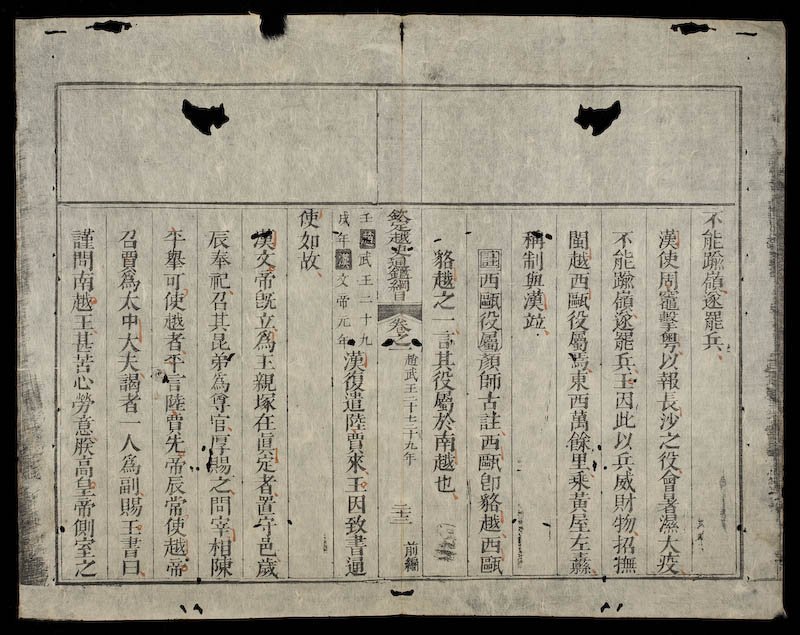 不能踰嶺遂罷兵
漢使周竈擊粵以報長沙之役會暑濕大疫
不能踰嶺遂罷兵王因此以兵威財物招撫
閩越西甌役屬焉東西萬餘里乘黃屋左纛
稱制與漢竝
註西甌役屬顏師古註西甌卽貉越西甌
貉越之一言其役屬於南越也
欽定越史通鑑綱目 卷之一 趙武王二十七二十九年 二十三 前編
壬戌 趙武王二十九年 漢文帝元年 漢復遣陸賈來王因致書通
使如故
漢文帝旣立爲王親塚在眞定者置守邑歲
辰奉祀召其昆弟爲尊官厚賜之問宰相陳
平舉可使越者平言陸賈先帝辰常使越帝
召賈爲太中大夫謁者一人爲副賜王書曰
謹問南越王甚苦心勞意朕高皇帝側室之